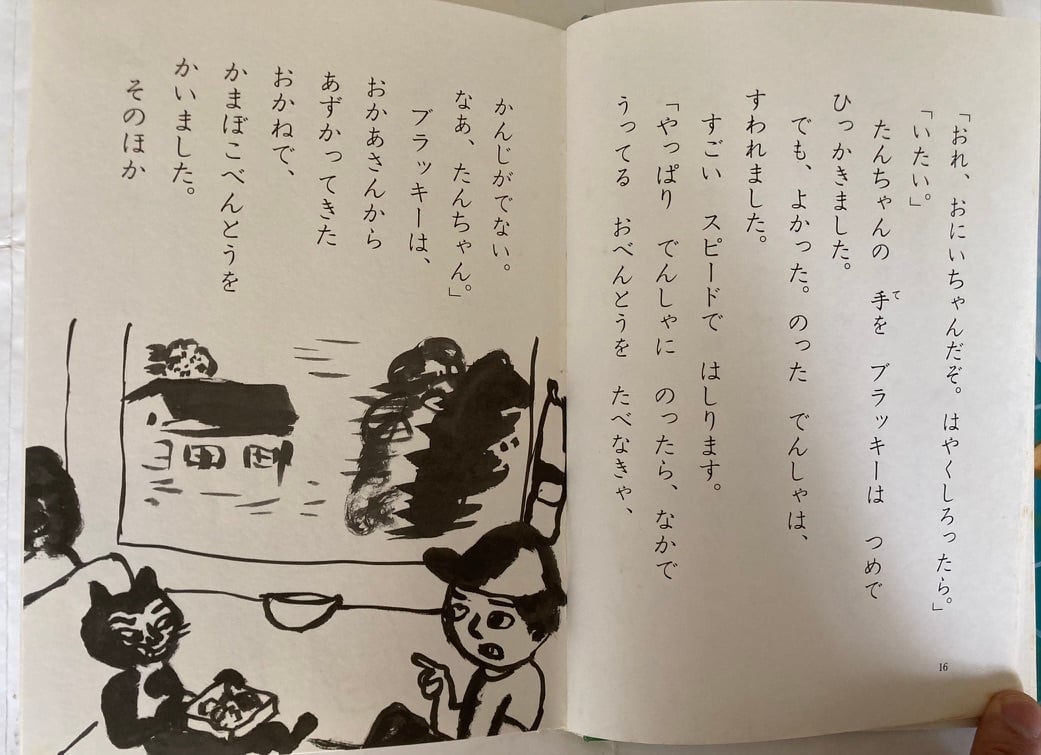 「おれ、おにいちゃんだぞ。はやくしろったら。」
「いたい。」
たんちゃんの　手を　ブラッキーは　つめで
ひっかきました。
でも、よかった。のった　でんしゃは、
すわれました。
すごい　スピードで　はしります。
「やっぱり　でんしゃに　のったら、なかで
うってる　おべんとうを　たべなきゃ、
16
かんじがでない。
なあ、たんちゃん。」
ブラッキーは、
おかあさんから
あずかってきた
おかねで、
かまぼこべんとうを
かいました。
そのほか